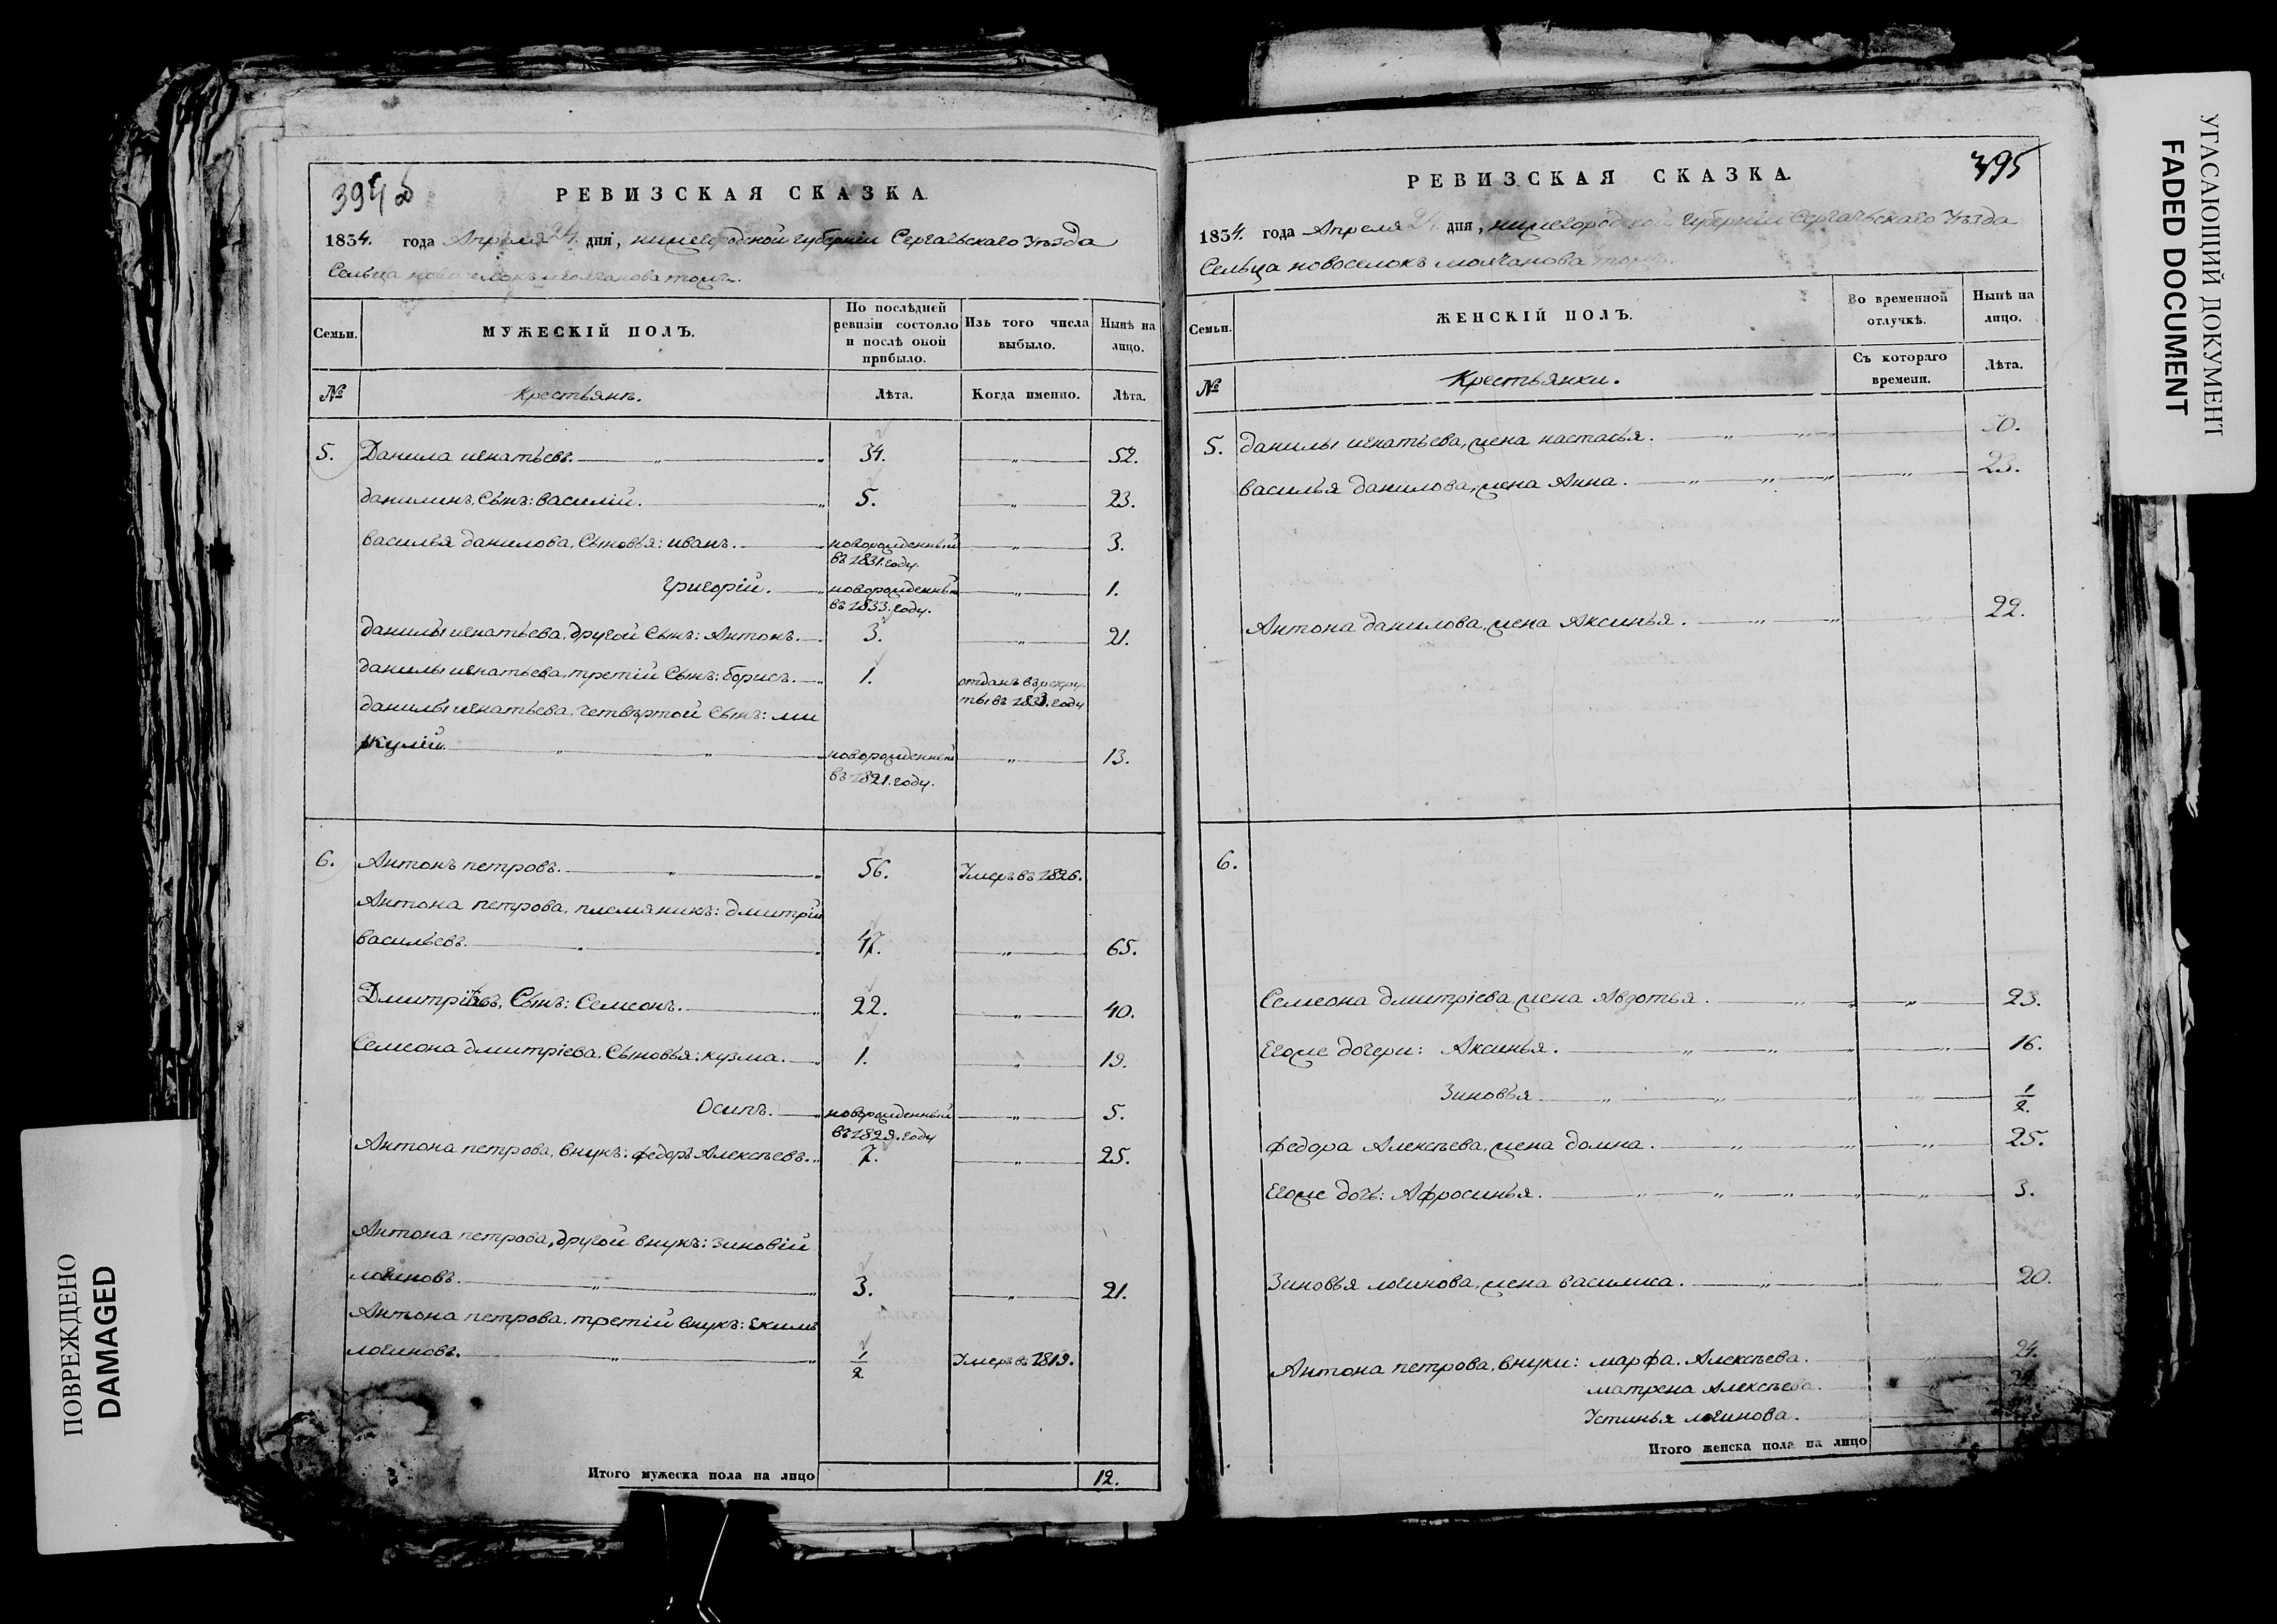 394 об
РЕВИЗСКАЯ СКАЗКА.
1834. года Апреля 24. дня, нижегородской губерніи Сергачьскаго уѣзда
Сельца новоселокъ молчанова тожъ.
Семьи.
МУЖЕСКІЙ ПОЛЪ.
По послѣдней
ревизіи состояло
и послѣ оной
прибыло.
Изъ того числа
выбыло.
Нынѣ на
лицо.
№
Крестьянъ.
Лѣта.
Когда именно.
Лѣта.
5. Данила игнатьевъ. 34. 52.
данилинъ, Сынъ: василій. 5. 23.
василья данилова, Сыновья: иванъ. новорожденный 3.
въ 1831. году.
григорій. новорожденный 1.
въ 1833. году.
данилы игнатьева, другой Сынъ: Антонъ. 3. 21.
данилы игнатьева, третій Сынъ: борисъ. 1. отданъ въ рекру-
ты въ 1833. году
данилы игнатьева, четвѣртой Сынъ: ми
кулій. новорожденный 13.
въ 1821. году.
6. Антонъ петровъ. 56. Умеръ въ 1826.
Антона петрова, племяникъ: дмитрій
васильевъ. 47. 65.
Дмитріевъ, Сынъ: Семеонъ. 22. 40.
Семеона дмитріева, Сыновья: кузма. 1. 19.
Осипъ. новорожденный 5.
въ 1829. году
Антона петрова, внукъ: федоръ Алексѣевъ. 7. 25.
Антона петрова, другой внукъ: зиновій
логиновъ. 3. 21.
Антона петрова, третій внукъ: Екимъ
логиновъ. 1/2 Умеръ въ 1819.
Итого мужеска пола на лицо 12.
395
РЕВИЗСКАЯ СКАЗКА.
1834. года Апреля 24. дня, нижегородской губерніи Сергачьскаго уѣзда
Сельца новоселокъ молчанова тожъ.
Семьи.
ЖЕНСКІЙ ПОЛЪ.
Во временной
отлучкѣ.
Нынѣ на
лицо.
№
Крестьянки.
Съ котораго
времени.
Лѣта.
5. данилы игнатьева, жена настасья. 50.
василья данилова, жена Анна. 23.
Антона данилова, жена Аксинья. 22.
6.
Семеона дмитріева жена Авдотья. 23.
Егоже дочери: Аксинья. 16.
Зиновья 1/2.
федора Алексѣева, жена домна. 25.
Егоже дочь: Афросинья. 3.
Зиновья логинова, жена василиса. 20.
Антона петрова, внуки: марфа. Алексѣева. 24.
матрена Алексѣева.
Устинья логинова.
Итого женска пола на лицо
ПОВРЕЖДЕНО
DAMAGED
УГАСАЮЩИЙ ДОКУМЕНТ
FADED DOCUMENT